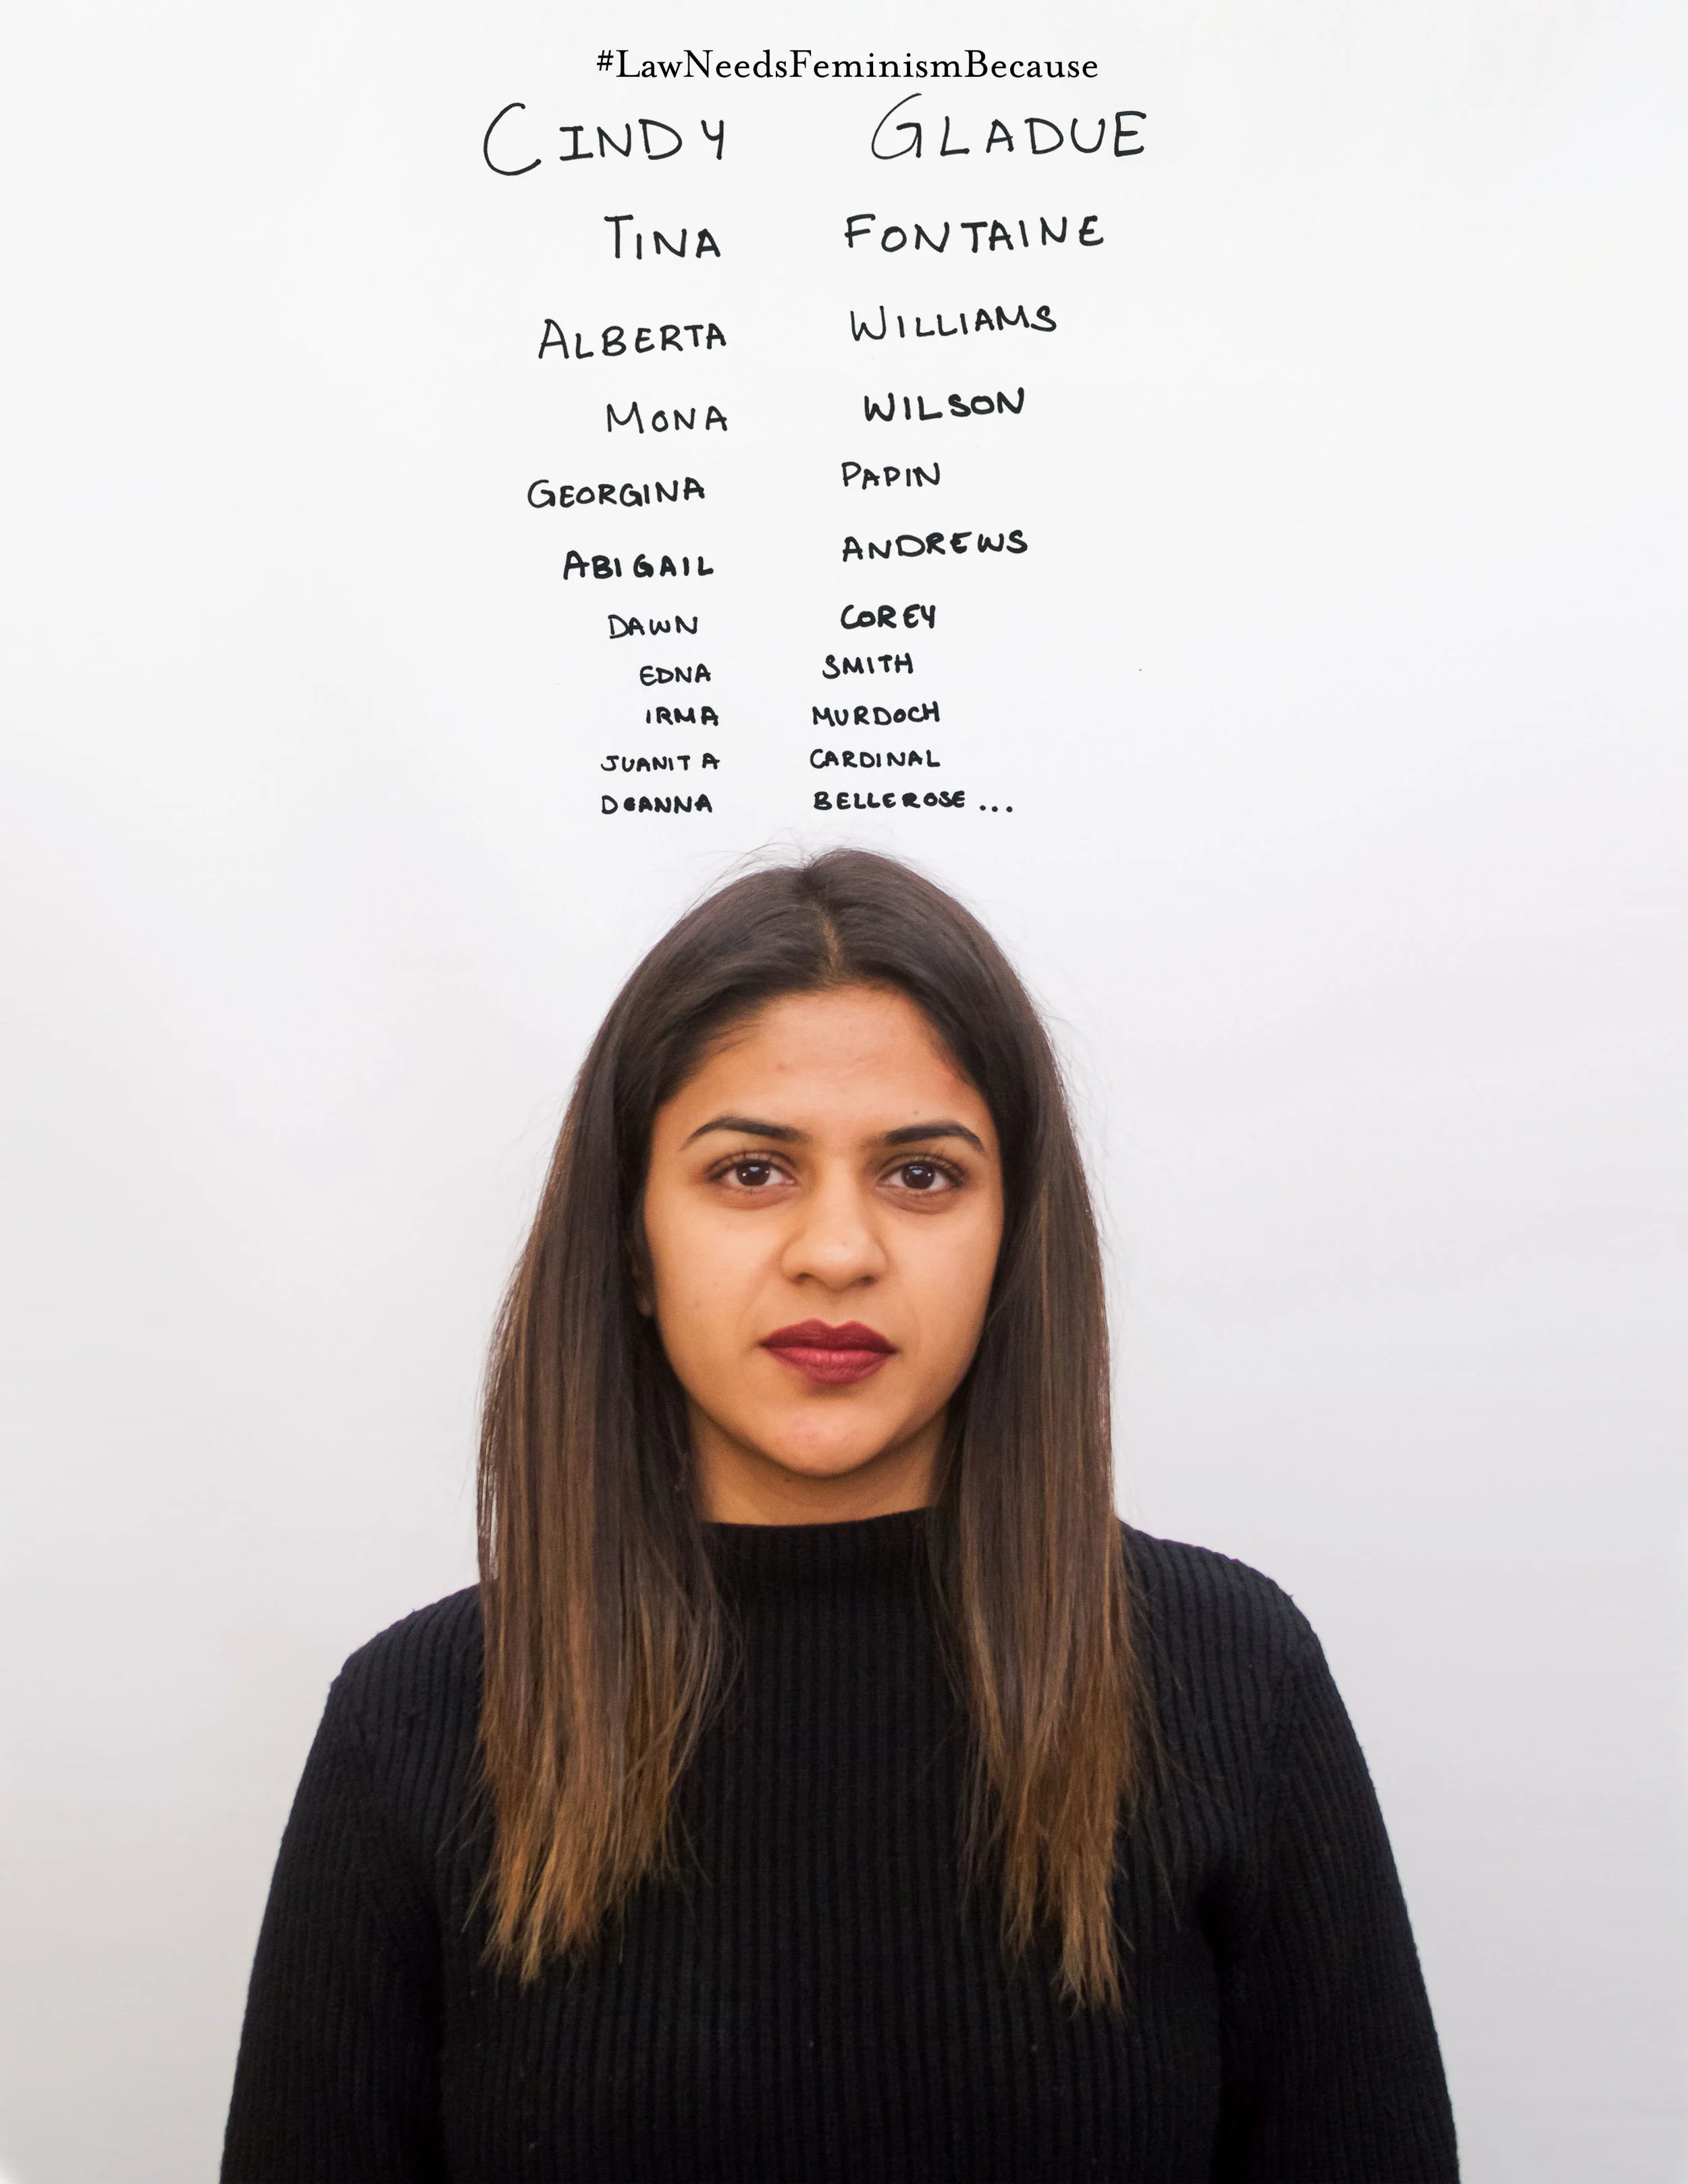 #LawNeedsFeminismBecause
CINDY GLADUE
TINA FONTAINE
ALBERTA WILLIAMS
MONA WILSON
GEORGINA PAPIN
ABIGAIL ANDREWS
DAWN COREY
EDNA SMITH
IRMA MURDOCH
JUANITA CARDINAL
DEANNA BELLEROSE ...